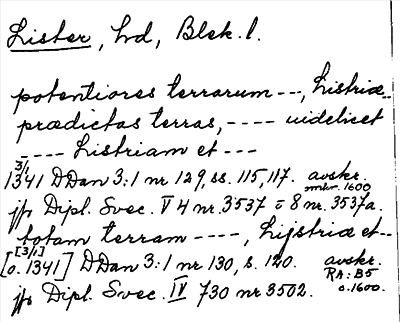 Lister, hd, Blek. l.
potentiores terrarum ---, Listriæ..
prædictas terras, ---- uidelicet
---- Listriam et ---
3/1
1341 DDan 3:1 nr 129, ss. 115, 117. avskr.
omkr. 1600
jfr Dipl. Svec. V 4 nr. 3537 = 8 nr. 3537a.
totam terram ----, Lijstriæ et--
[3/1]
[o. 1341] DDan 3:1 nr 130, s. 120. avskr.
RA: B5
jfr Dipl. Svec. IV 730 nr 3502. o. 1600.